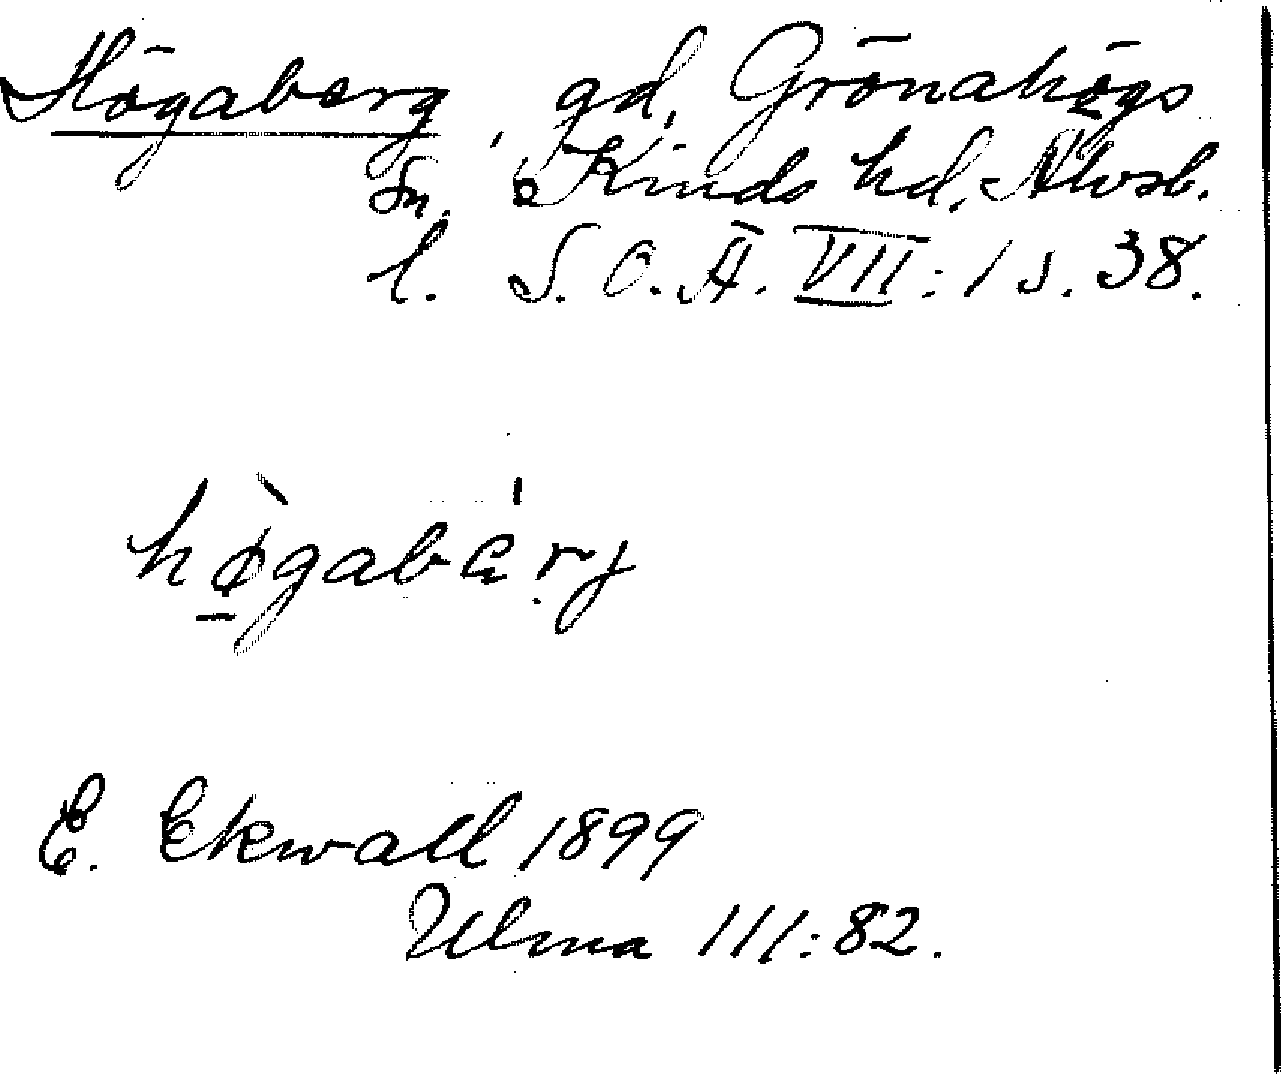 Högaberg, gd, Grönahögs
sn, Kinds hd. Älvsb.
l. S. O. Ä. VII: 1 s. 38.
hø̀gabǽrj
E. Ekwall 1899
Ulma 111:82.